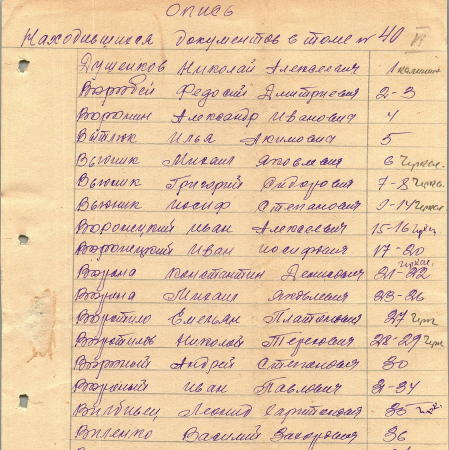 Опись
Находившихся документов в томе № 40 VI
Душенков Николай Алексеевич 1
Воробей Федосий Дмитриевич 2-3
Воронин Александр Иванович 4
Вытюк Илья Акимович 5
Вьюник Михаил Яковлевич 6
Вьюник Григорий Сидорович 7-8
Вьюник Иосиф Степанович 9-14
Воронецкий Иван Алексеевич 15-16
Воронецкий Иван Иосифович 17-20
Ворона Константин Денисович 21-22
Ворона Михаил Яковлевич 23-26
Воротило Емельян Платонович 27
Воротилов Николай Терехович 28-29
Вороной Андрей Степанович 30
Вороной Иван Павлович 31-34
Леонид Харитонович 35
Виленко Василий Захарович 36